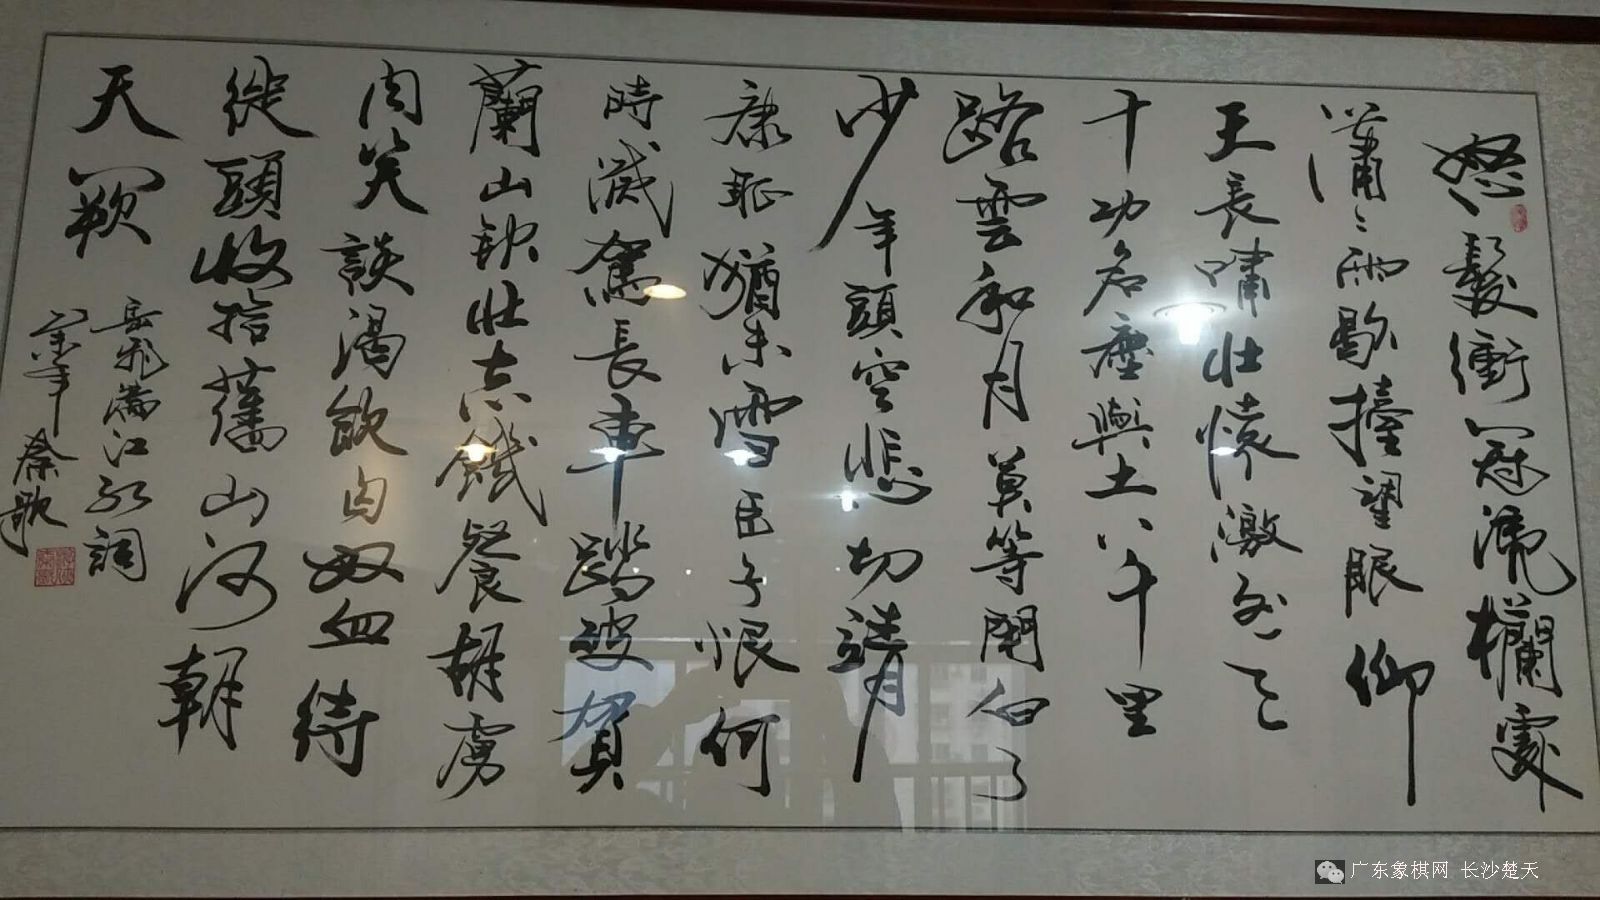 怒髮衝冠凴欄處
瀟〻雨歇擡望眼仰
天長嘯壯懷激烈三
十功名塵與土八千里
路雲和月莫等閑白了
少年頭空悲切靖
康恥猶未雪臣子恨何
時滅駕長車踏破賀
蘭山缺壯志饑餐胡虜
肉笑談渴飲匈奴血待
從頭收拾舊山河朝
天闕
岳飛滿江紅詞
秦歌
广东象棋网 长沙楚天